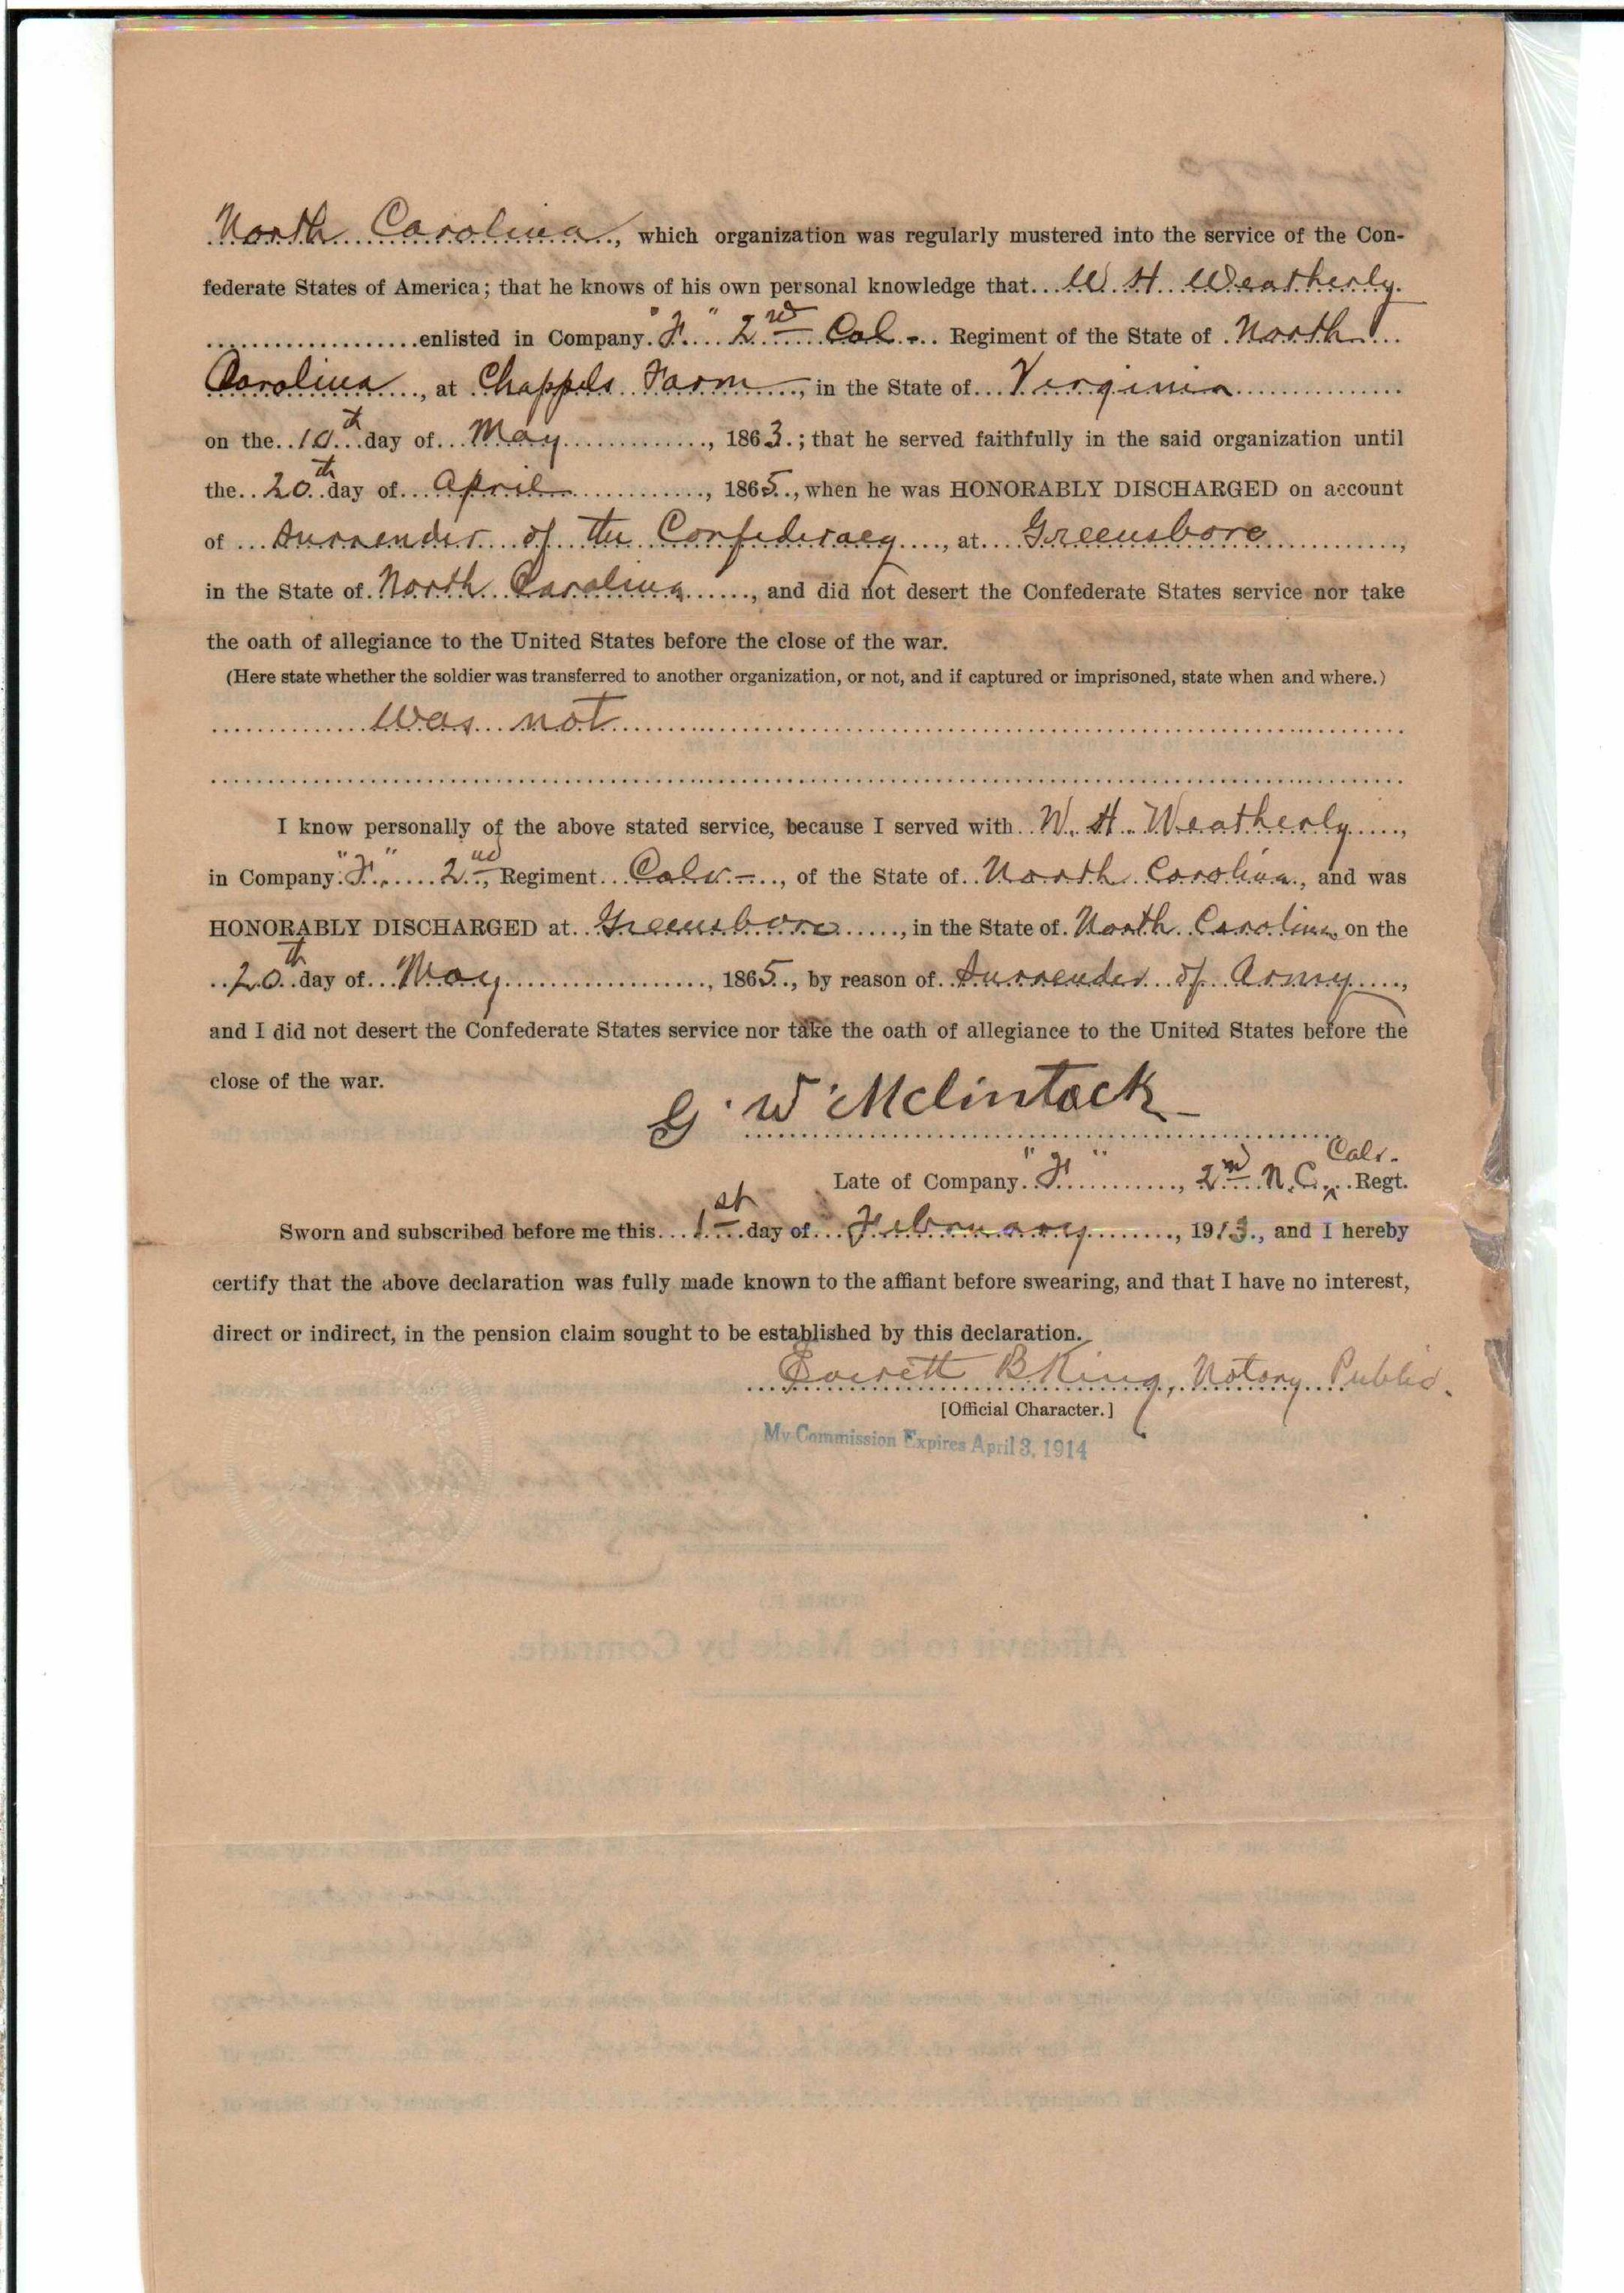 North Carolina, which organization was regularly mustered into the service of the Con-
federate States of America; that he knows of his own personal knowledge that W. H. Weatherly
enlisted in Company "F" 2nd Cal - Regiment of the State of North
Carolina, at Chappels Farm, in the State of Virginia
on the 10th day of May, 1863; that he served faithfully in the said organization until
the 20th day of April, 1865, when he was HONORABLY DISCHARGED on account
of Surrender of the Confederacy, at Greensboro,
in the State of North Carolina, and did not desert the Confederate States service nor take
the oath of allegiance to the United States before the close of the war.
(Here state whether the soldier was transferred to another organization, or not, and if captured or imprisoned, state when and where.)
Was not
I know personally of the above stated service, because I served with W. H. Weatherly,
in Company "F", 2nd, Regiment Calv -, of the State of North Carolina, and was
HONORABLY DISCHARGED at Greensboro, in the State of North Carolina on the
20th day of May, 1865, by reason of Surrender of Army,
and I did not desert the Confederate States service nor take the oath of allegiance to the United States before the
close of the war.
G. W McLintock
Late of Company "F", 2nd N. C. Calv. Regt.
Sworn and subscribed before me this 1st day of February, 1913, and I hereby
certify that the above declaration was fully made known to the affiant before swearing, and that I have no interest,
direct or indirect, in the pension claim sought to be established by this declaration.
Everett B King, Notary Public.
[Official Character.]
My Commission Expires April 3, 1914
Affidavit to be Made by Comrade.